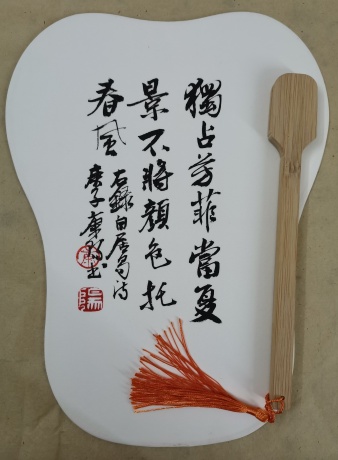 獨占芳菲當夏
景不將顏色托
春風
右録白居易诗
庚子